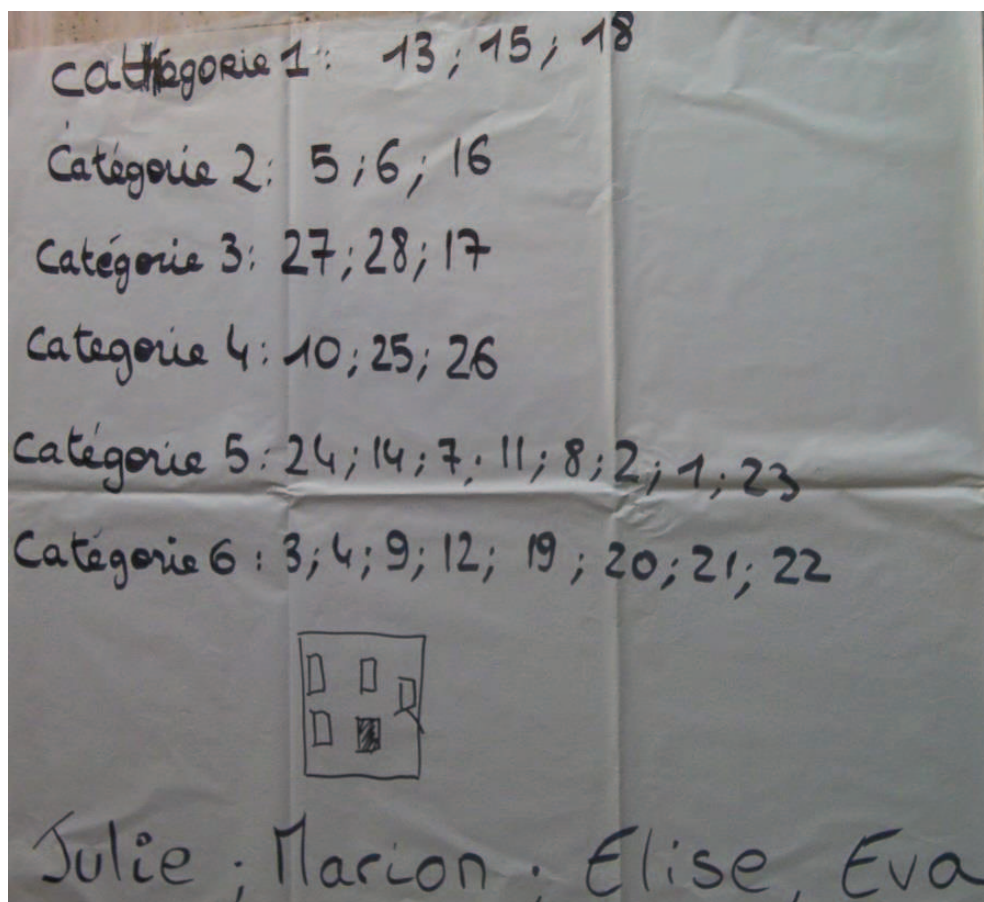 Cathégorie 1 : 13 ; 15 ; 18
Catégorie 2 : 5 ; 6 ; 16
Catégorie 3 : 27 ; 28 ; 17
Categorie 4 : 10 ; 25 ; 26
Catégorie 5 : 24 ; 14 ; 7 ; 11 ; 8 ; 2 ; 1 ; 23
Catégorie 6 : 3 ; 4 ; 9 ; 12 ; 19 ; 20 ; 21 ; 22
Julie ; Marion ; Elise, Eva